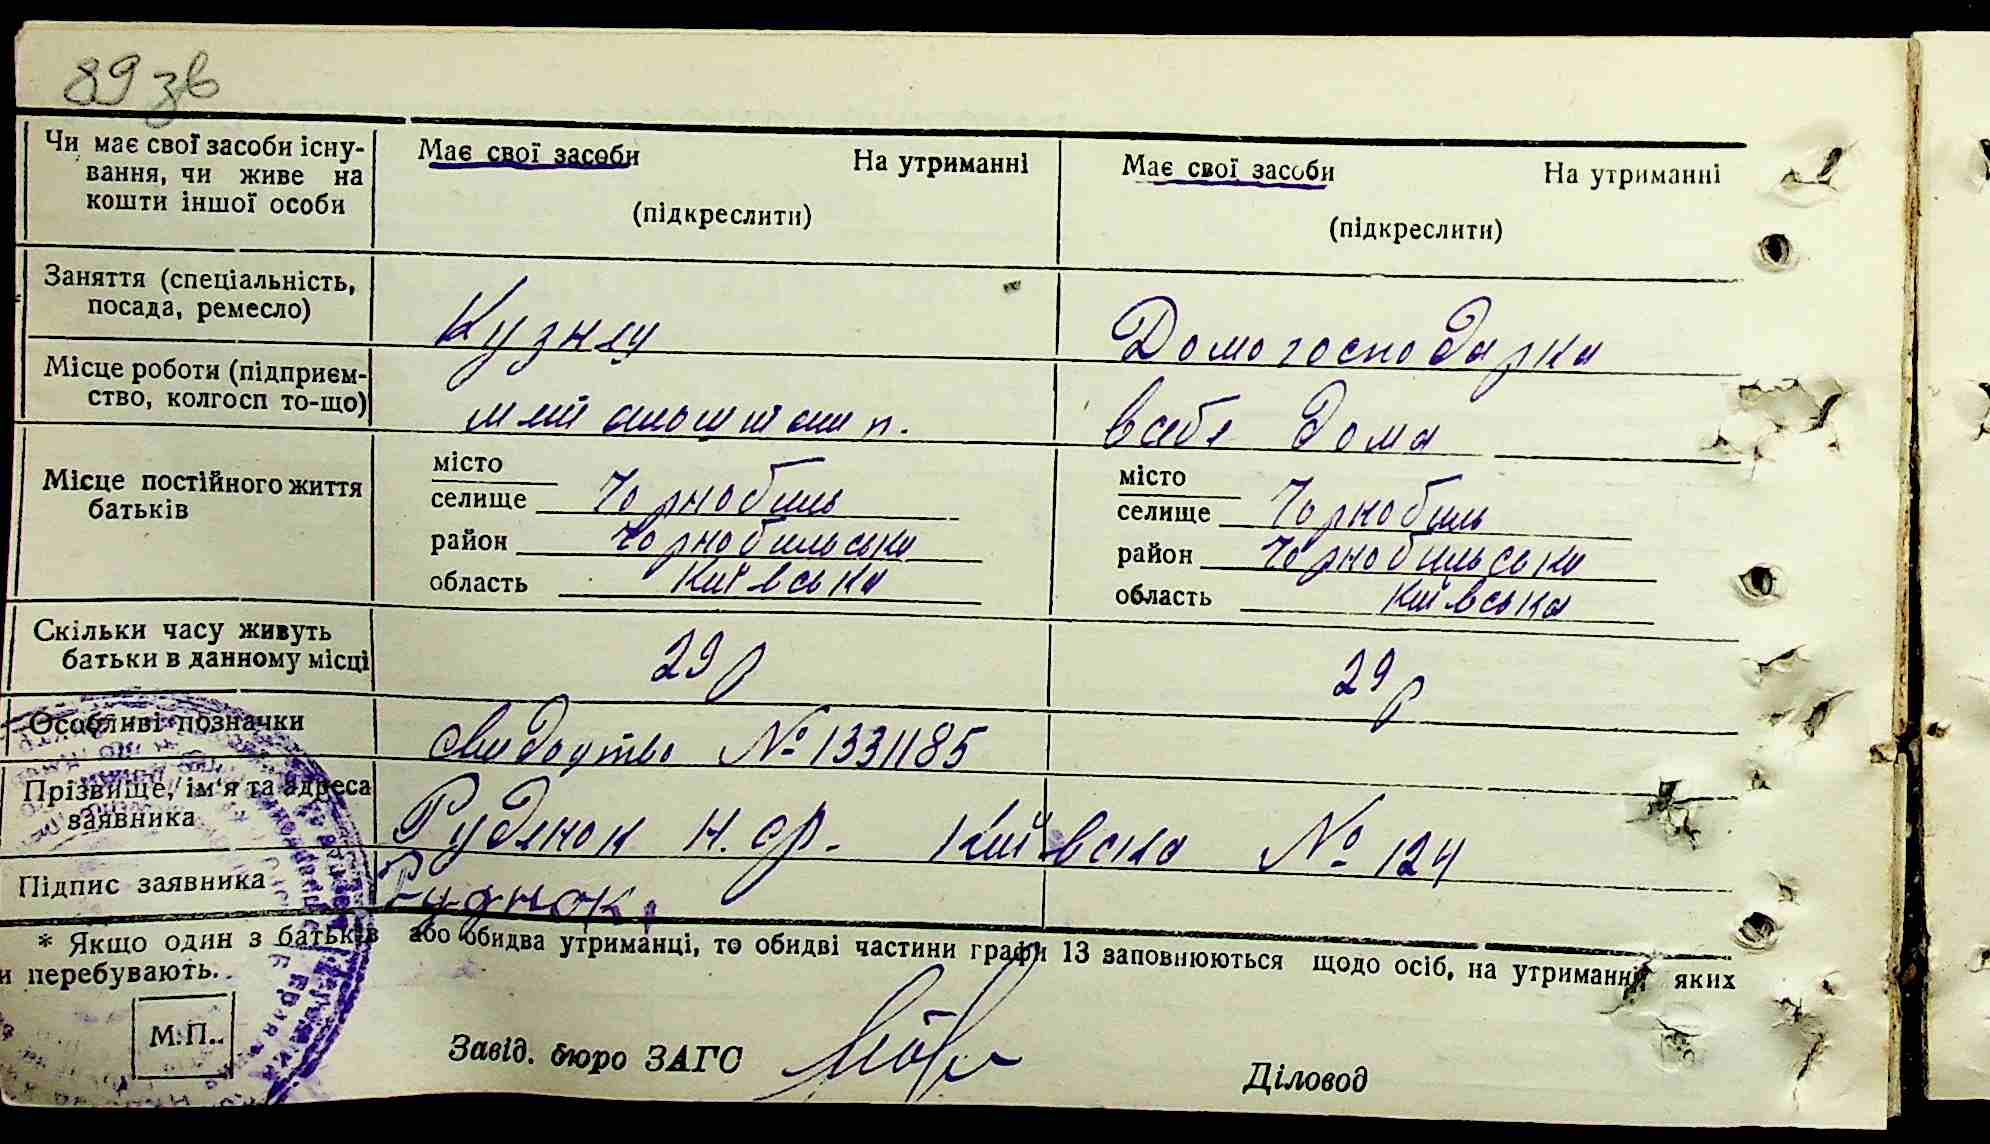 89 зв
Чи має свої засоби існу-
вання, чи живе на
кошти іншої особи
Має свої засоби На утриманні
(підкреслити)
Має свої засоби На утриманні
(підкреслити)
Заняття (спеціальність,
посада, ремесло)
Домогосподарка
Місце роботи (підприєм-
ство, колгосп то-що)
в себе дома
Місце постійного життя
батьків
місто
селище Чорнобиль
район Чорнобильськи
область Київська
місто
селище Чорнобиль
район Чорнобильськи
область Київська
Скільки часу живуть
батьки в данному місці
29 р
29 р
Особливі позначки
свидоцтво № 1331185
Прізвище, ім'я та адреса
заявника
Рудянок Київська № 124
Підпис заявника
* Якщо один з батьків або обидва утриманці, то обидві частини графи 13 заповнюються щодо осіб, на утриманні яких
и перебувають.
М.П..
Завід. бюро ЗАГС
Діловод